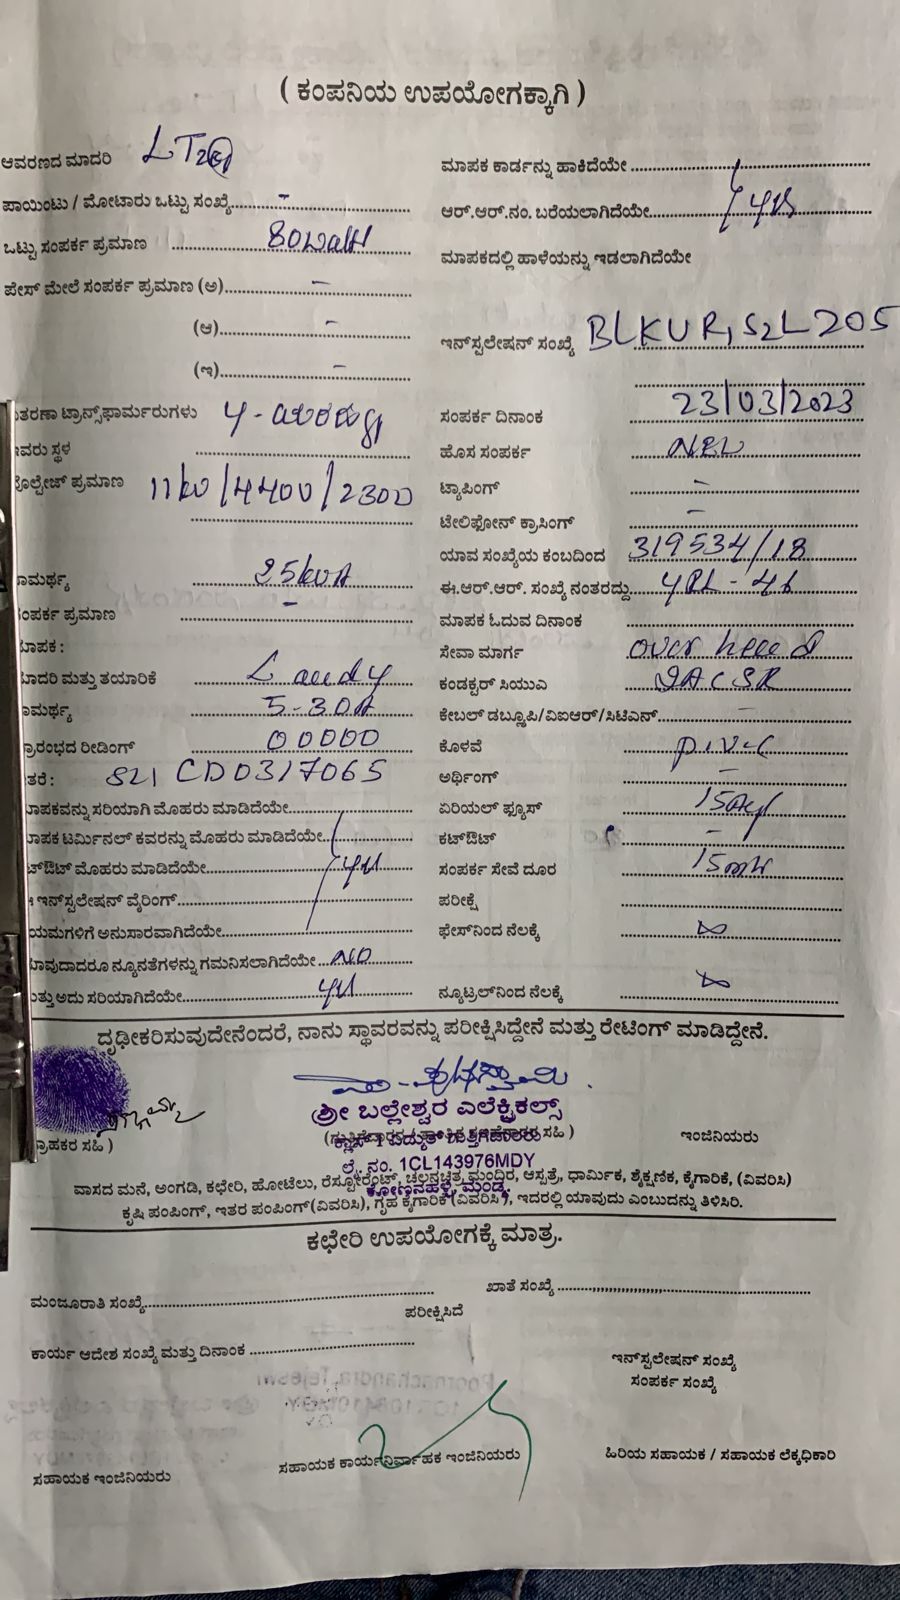 ( ಕಂಪನಿಯ ಉಪಯೋಗಕ್ಕಾಗಿ )
ಆವರಣದ ಮಾದರಿ LT2
ಪಾಯಿಂಟು / ಮೋಟಾರು ಒಟ್ಟು ಸಂಖ್ಯೆ -
ಒಟ್ಟು ಸಂಪರ್ಕ ಪ್ರಮಾಣ 80watt
ಪೇಸ್ ಮೇಲೆ ಸಂಪರ್ಕ ಪ್ರಮಾಣ (ಅ) -
(ಆ) -
(ಇ) -
ತರಣಾ ಟ್ರಾನ್ಸ್‌ಫಾರ್ಮರುಗಳು
ವರು ಸ್ಥಳ
ೋಲ್ಟೇಜ್ ಪ್ರಮಾಣ 11kv/4400/2300
ಾಮರ್ಥ್ಯ 25kvA
ಂಪರ್ಕ ಪ್ರಮಾಣ -
ಾಪಕ :
ಾದರಿ ಮತ್ತು ತಯಾರಿಕೆ
ಾಮರ್ಥ್ಯ 5-30A
್ರಾರಂಭದ ರೀಡಿಂಗ್ 00000
ತರೆ : 821 CD0317065
ಾಪಕವನ್ನು ಸರಿಯಾಗಿ ಮೊಹರು ಮಾಡಿದೆಯೇ
ಾಪಕ ಟರ್ಮಿನಲ್ ಕವರನ್ನು ಮೊಹರು ಮಾಡಿದೆಯೇ
ಟ್‌ಔಟ್ ಮೊಹರು ಮಾಡಿದೆಯೇ
ಇನ್‌ಸ್ಪಲೇಷನ್ ವೈರಿಂಗ್
ಯಮಗಳಿಗೆ ಅನುಸಾರವಾಗಿದೆಯೇ
ಾವುದಾದರೂ ನ್ಯೂನತೆಗಳನ್ನು ಗಮನಿಸಲಾಗಿದೆಯೇ NO
ತ್ತು ಅದು ಸರಿಯಾಗಿದೆಯೇ
ಮಾಪಕ ಕಾರ್ಡನ್ನು ಹಾಕಿದೆಯೇ
ಆರ್.ಆರ್.ನಂ. ಬರೆಯಲಾಗಿದೆಯೇ
ಮಾಪಕದಲ್ಲಿ ಹಾಳೆಯನ್ನು ಇಡಲಾಗಿದೆಯೇ
ಇನ್‌ಸ್ಪಲೇಷನ್ ಸಂಖ್ಯೆ BLKUR, S2L 205
ಸಂಪರ್ಕ ದಿನಾಂಕ 23/03/2023
ಹೊಸ ಸಂಪರ್ಕ NEW
ಟ್ಯಾಪಿಂಗ್ -
ಟೇಲಿಫೋನ್ ಕ್ರಾಸಿಂಗ್ -
ಯಾವ ಸಂಖ್ಯೆಯ ಕಂಬದಿಂದ 319534/18
ಈ.ಆರ್.ಆರ್. ಸಂಖ್ಯೆ ನಂತರದ್ದು
ಮಾಪಕ ಓದುವ ದಿನಾಂಕ
ಸೇವಾ ಮಾರ್ಗ over heed
ಕಂಡಕ್ಟರ್ ಸಿಯುಎ ACSR
ಕೇಬಲ್ ಡಬ್ಲೂಪಿ/ವಿಐಆರ್/ಸಿಟಿಎನ್ -
ಕೊಳವೆ P.V.C
ಅರ್ಥಿಂಗ್ -
ಏರಿಯಲ್ ಫ್ಯೂಸ್ 15
ಕಟ್‌ಔಟ್ -
ಸಂಪರ್ಕ ಸೇವೆ ದೂರ
ಪರೀಕ್ಷೆ
ಫೇಸ್‌ನಿಂದ ನೆಲಕ್ಕೆ
ನ್ಯೂಟ್ರಲ್‌ನಿಂದ ನೆಲಕ್ಕೆ
ದೃಢೀಕರಿಸುವುದೇನೆಂದರೆ, ನಾನು ಸ್ಥಾವರವನ್ನು ಪರೀಕ್ಷಿಸಿದ್ದೇನೆ ಮತ್ತು ರೇಟಿಂಗ್ ಮಾಡಿದ್ದೇನೆ.
ಶ್ರೀ ಬಲ್ಲೇಶ್ವರ ಎಲೆಕ್ಟ್ರಿಕಲ್ಸ್
್ರಾಹಕರ ಸಹಿ )
ಇಂಜಿನಿಯರು
ಲೈ. ನಂ. 1CL143976MDY
ವಾಸದ ಮನೆ, ಅಂಗಡಿ, ಕಛೇರಿ, ಹೋಟೆಲು, ರೆಸ್ಟೋರೆಂಟ್, ಚಲನಚಿತ್ರ ಮಂದಿರ, ಆಸ್ಪತ್ರೆ, ಧಾರ್ಮಿಕ, ಶೈಕ್ಷಣಿಕ, ಕೈಗಾರಿಕೆ, (ವಿವರಿಸಿ)
ಕೃಷಿ ಪಂಪಿಂಗ್, ಇತರ ಪಂಪಿಂಗ್(ವಿವರಿಸಿ), ಗೃಹ ಕೈಗಾರಿಕೆ (ವಿವರಿಸಿ), ಇದರಲ್ಲಿ ಯಾವುದು ಎಂಬುದನ್ನು ತಿಳಿಸಿರಿ.
ಕಛೇರಿ ಉಪಯೋಗಕ್ಕೆ ಮಾತ್ರ.
ಮಂಜೂರಾತಿ ಸಂಖ್ಯೆ
ಖಾತೆ ಸಂಖ್ಯೆ
ಪರೀಕ್ಷಿಸಿದೆ
ಕಾರ್ಯ ಆದೇಶ ಸಂಖ್ಯೆ ಮತ್ತು ದಿನಾಂಕ
ಇನ್‌ಸ್ಪಲೇಷನ್ ಸಂಖ್ಯೆ
ಸಂಪರ್ಕ ಸಂಖ್ಯೆ
ಸಹಾಯಕ ಇಂಜಿನಿಯರು
ಸಹಾಯಕ ಕಾರ್ಯನಿರ್ವಾಹಕ ಇಂಜಿನಿಯರು
ಹಿರಿಯ ಸಹಾಯಕ / ಸಹಾಯಕ ಲೆಕ್ಕಧಿಕಾರಿ